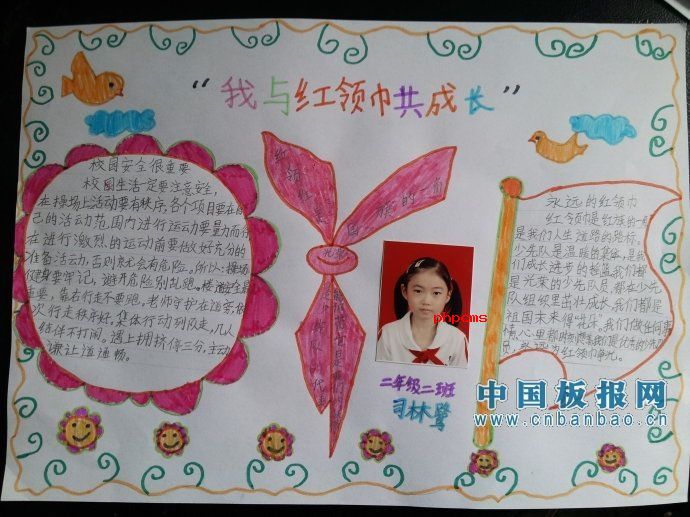 “我与红领巾共成长”
校园安全很重要
校园生活一定要注意安全,
在操场上活动要有秩序,各个项目要在自
己的活动范围内进行运动要量力而行
在进行激烈的运动前要做好充分的
准备活动,否则就会有危险。所以:操场
健身要牢记,避开危险别乱跑。楼道安全最
重要,靠右行走不要跑,老师守护在边旁,依
次行走秩序好,集体行动列队走,几人
结伴不打闹。遇上拥挤停三分,主动
谦让道道畅。
红领巾是
国旗的一角
phpcms
二年级二班
司林鹭
永远的红领巾
红领巾是红旗的一角
是我们人生道路的航标。
少先队是温暖的集体,是我
们成长进步的摇篮我们都
是光荣的少先队员,都在少先
队组织里茁壮成长。我们都是
祖国未来得“花朵”。我们做任何事
情心里都
员,
为红领巾争光。
中国板报网
www.cnbanbao.cn